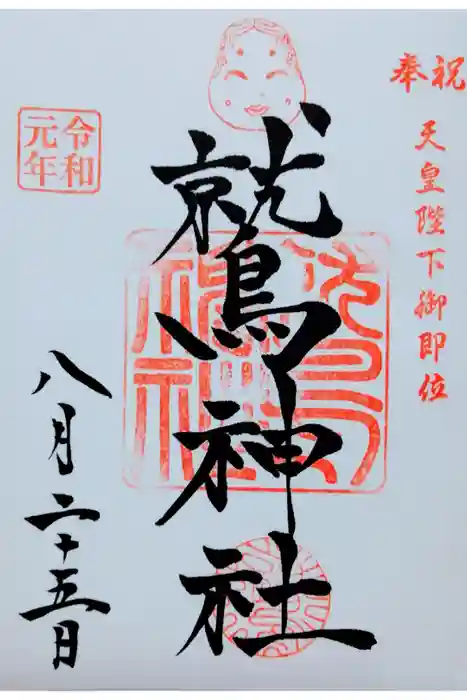 奉祝
天皇陛下御即位
鷲神社
令和
元年
八月二十五日